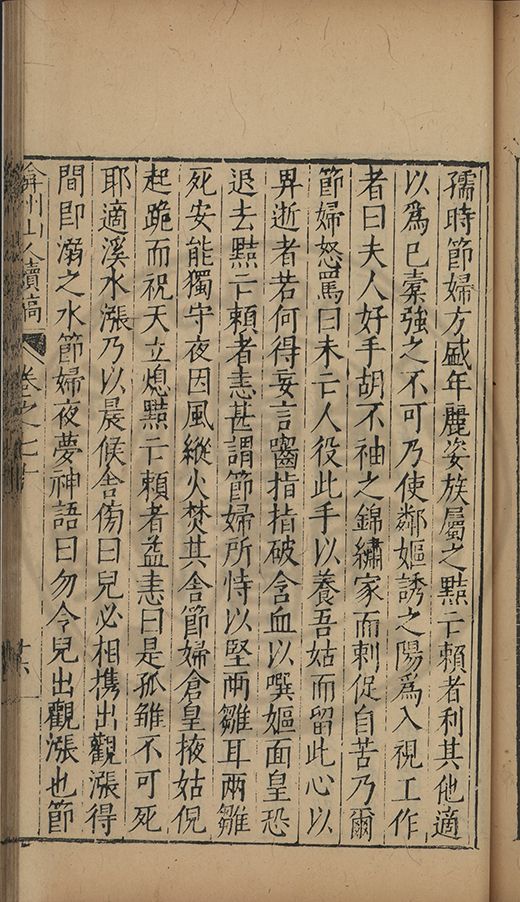 孺時節婦方盛年麗姿族屬之黠亡賴者利其他適
以爲已橐強之不可乃使鄰嫗誘之陽爲入視工作
者曰夫人好手胡不袖之錦繡家而刺促自苦乃爾
節婦怒罵曰未亡人役此手以養吾姑而留此心以
畀逝者若何得妄言齧指指破含血以噀嫗面皇恐
退去黠亡賴者恚甚謂節婦所恃以堅兩雛耳兩雛
死安能獨守夜因風縱火焚其舍節婦倉皇掖姑倪
起跪而祝天立熄黠亡賴者益恚曰是孤雛不可死
耶適溪水漲乃以晨候舍傍曰兒必相携出觀漲得
間即溺之水節婦夜夢神語曰勿令兒出觀漲也節
弇州山人續稿 卷之七十